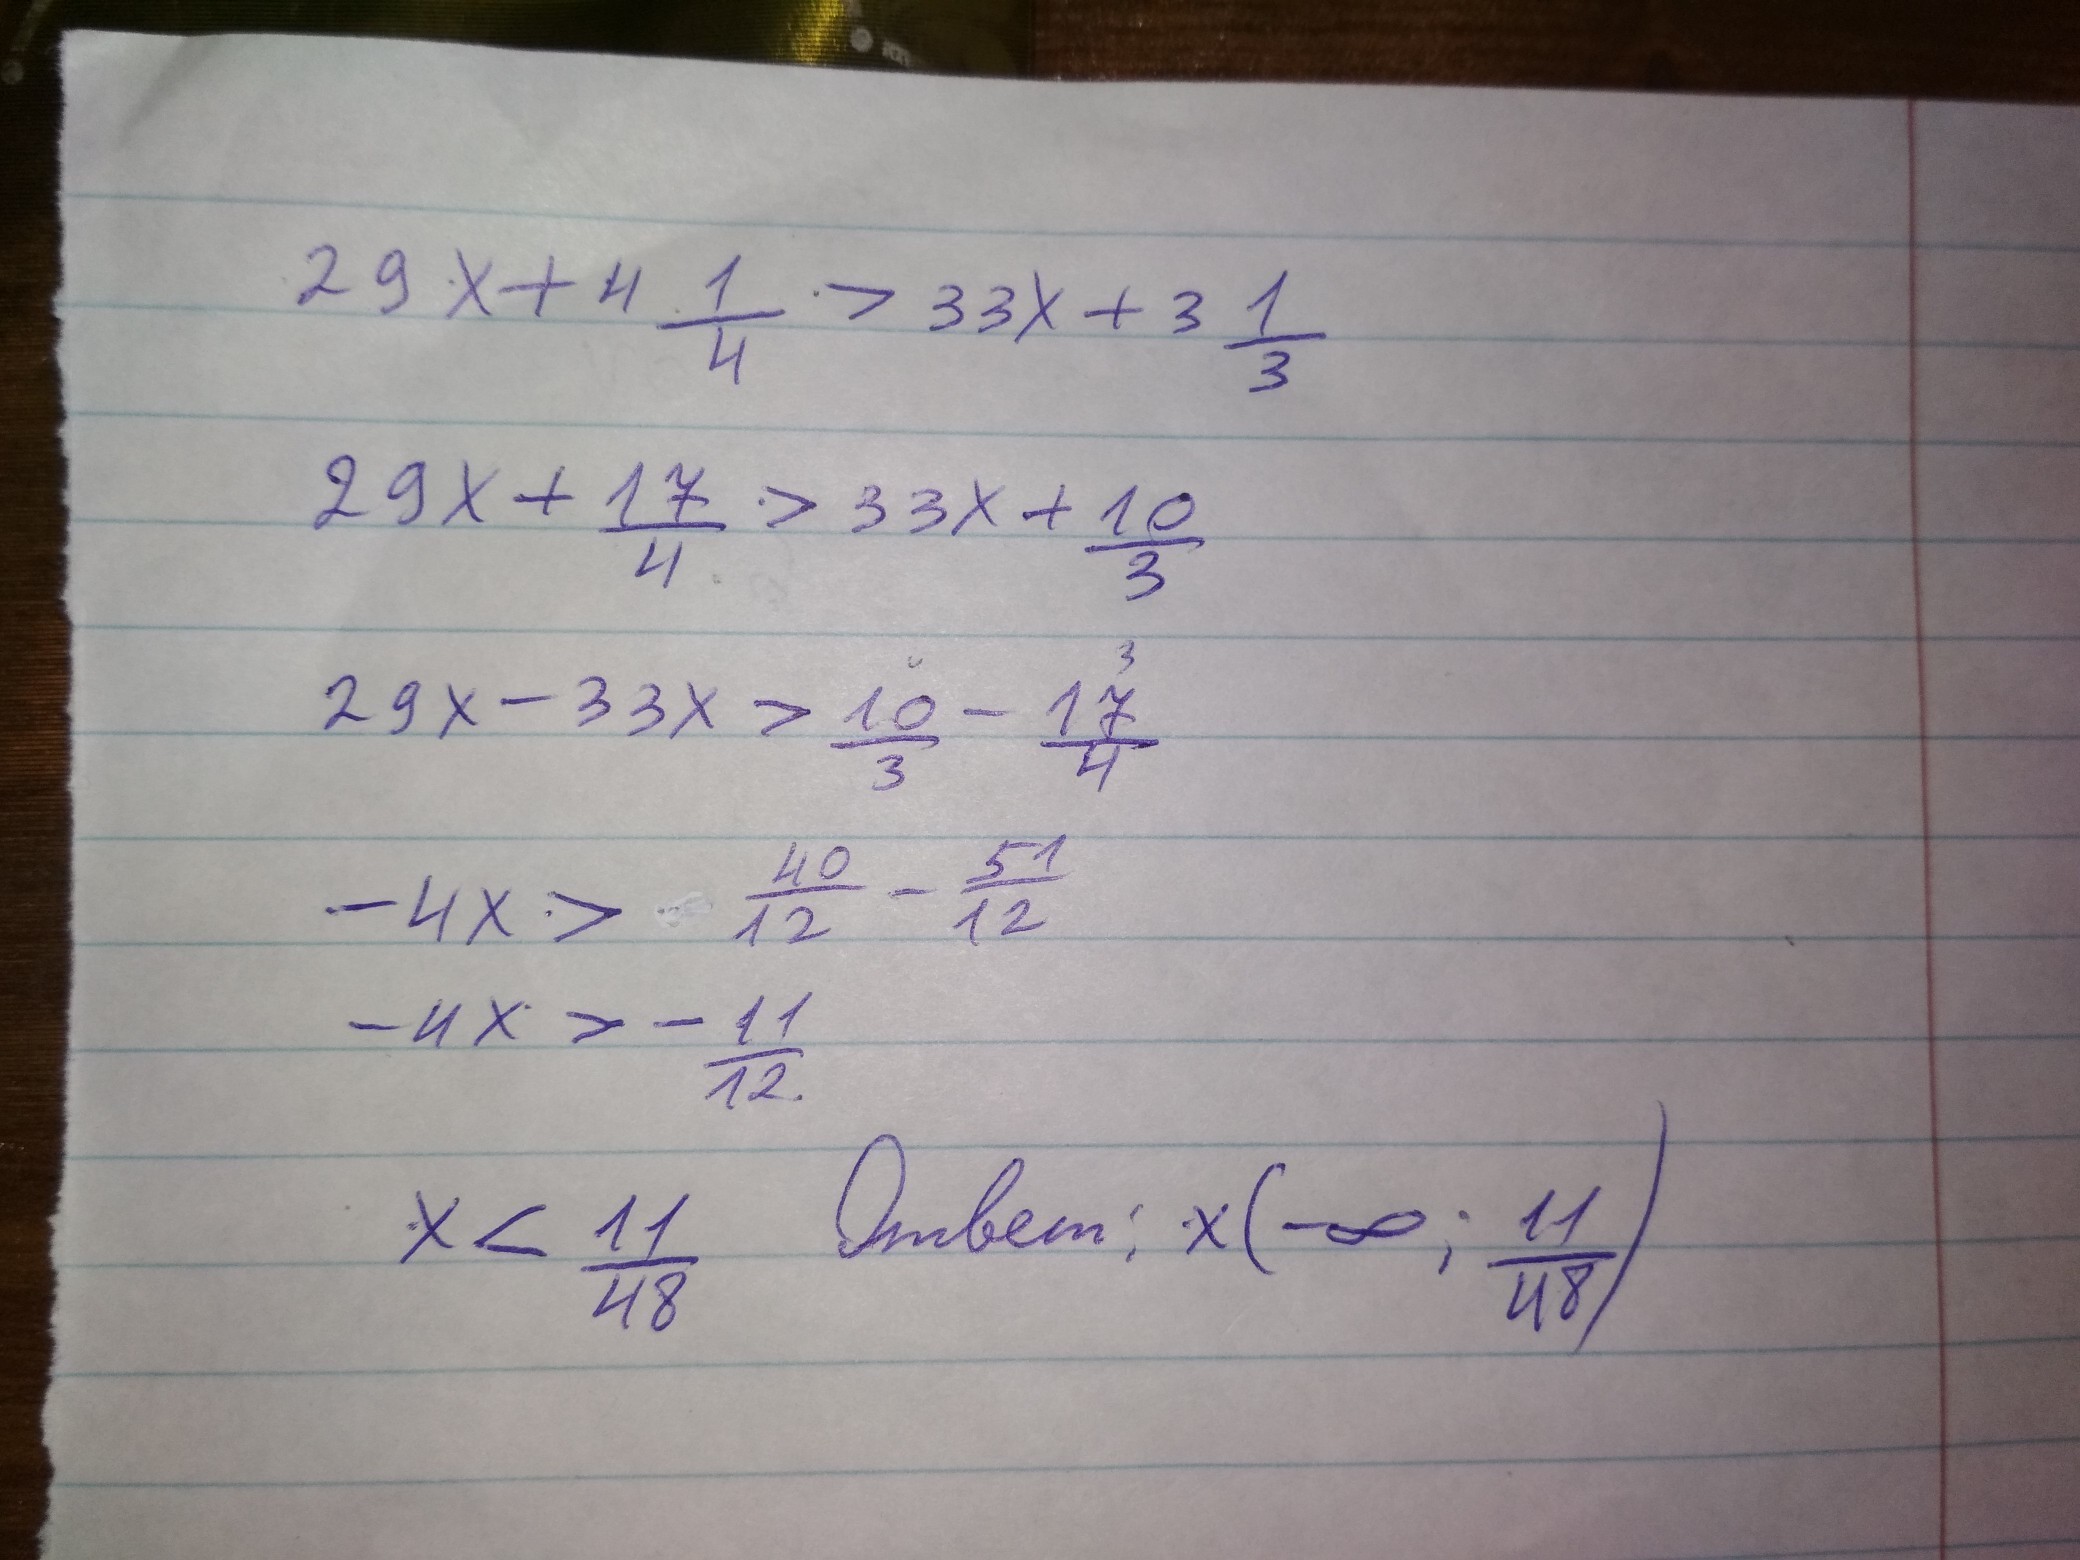 29x+4 1/4 > 33x+3 1/3
29x+ 17/4 > 33x+ 10/3
29x-33x > 10/3 - 17/4 3
-4x > 40/12 - 51/12
-4x > - 11/12.
x < 11/48 Ответ; x(-∞; 11/48)